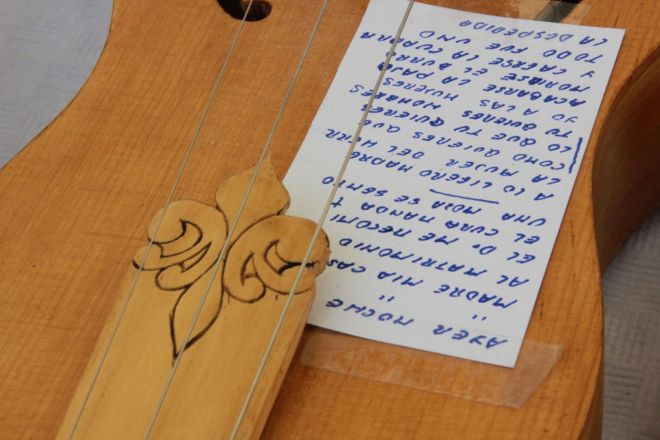 AYER NOCHE
MADRE MIA CAS
AL MATRIMONIO
EL Dr ME RECOMI
EL CURA MANDA T
UNA MOZA SE SENTO
A LO LIGERO MADRE
LA MUJER DEL HERR
COMO QUIERES QUE
LO QUE TU QUIERES
TU QUIERES HOMBRES
YO A LAS MUJERES
ACABARSE LA PAJA
MORIRSE EL BURRO
Y CAERSE LA CUADRA
TODO FUE UNO
LA DESPEDIDA